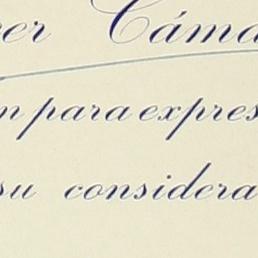 er Cáma
n para expres
su considera